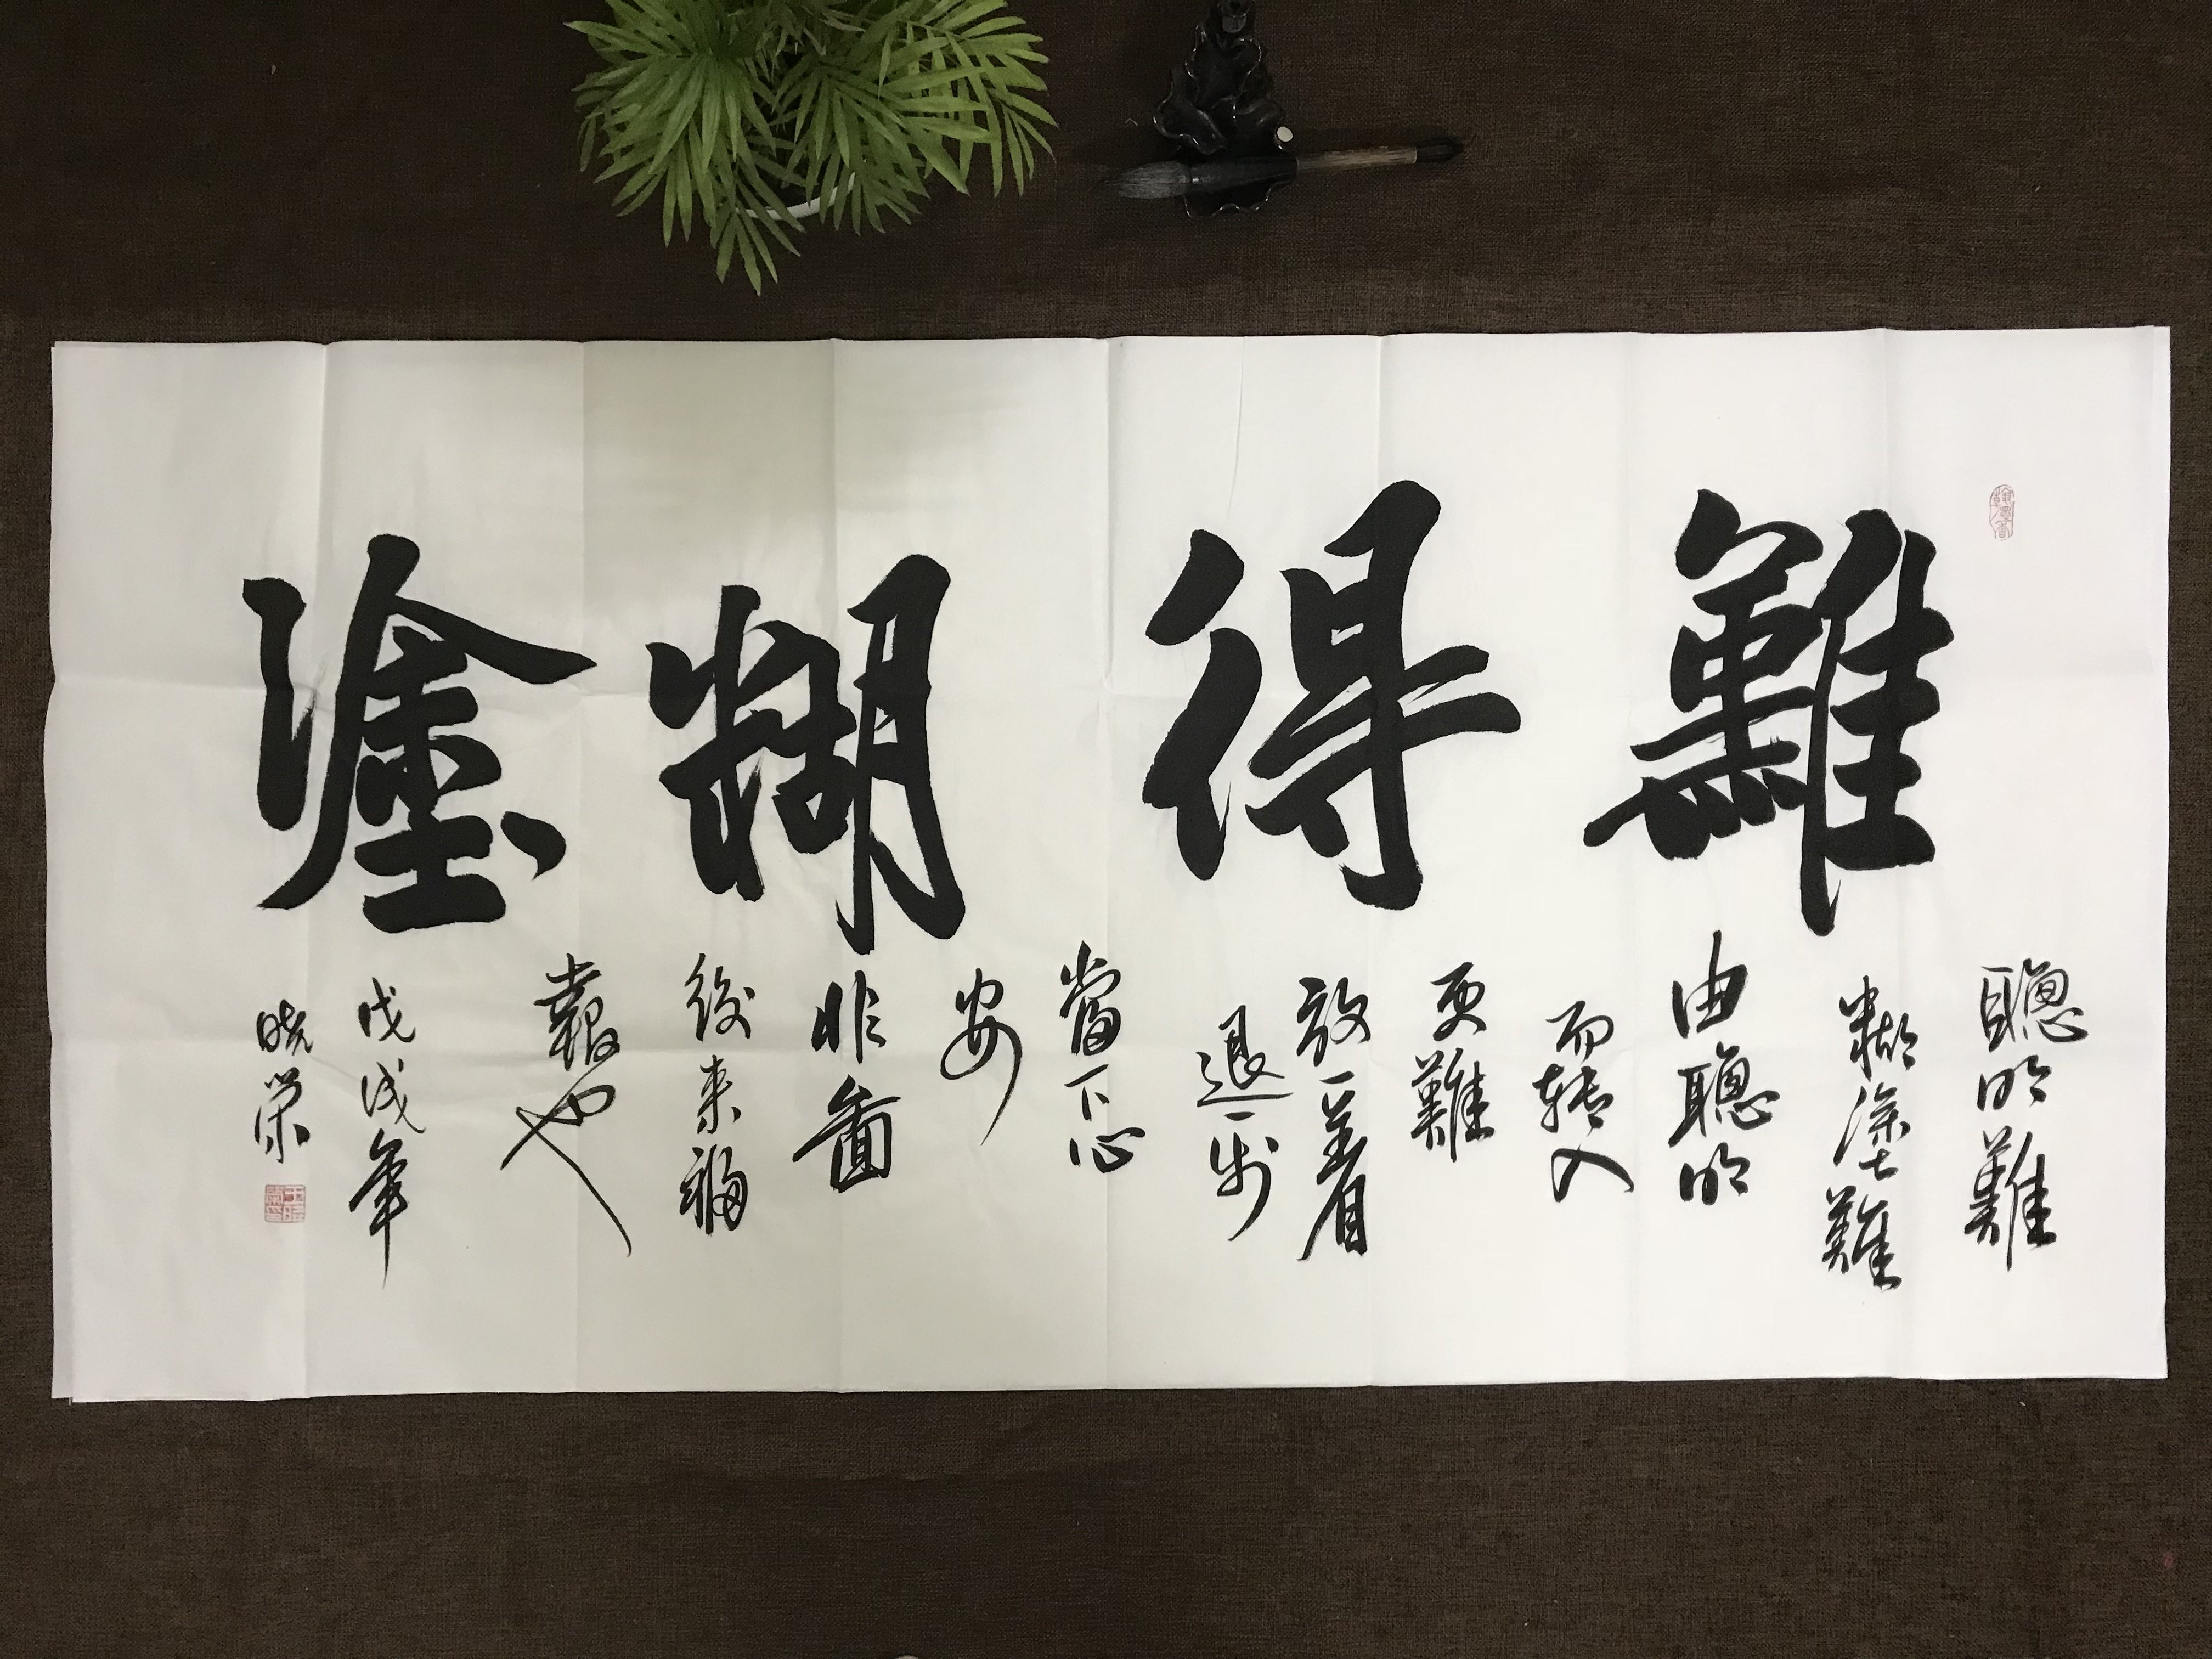 難得糊塗
聰明難
糊塗難
由聰明
而转入
更難
放一著
退一步
當下心
安
非啚
後来福
報也
戊戌年
晓荣